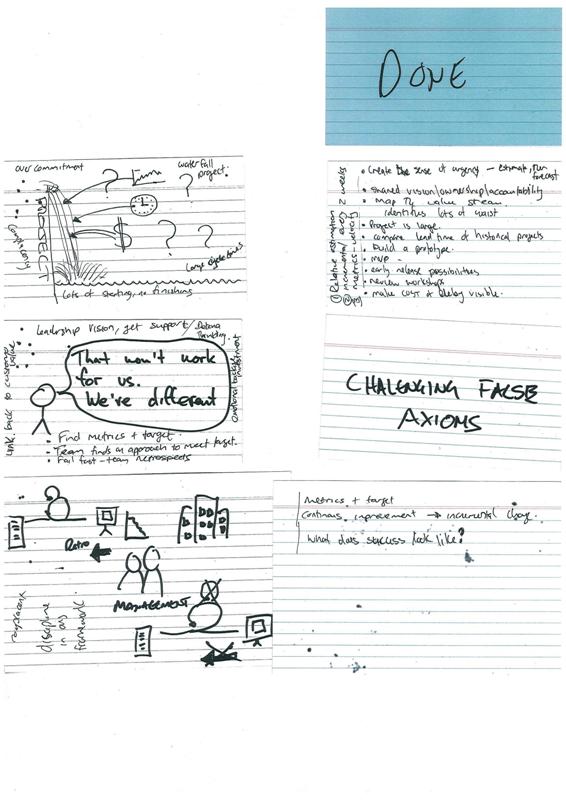 DONE
over commitment
waterfall project.
?
PROJECT
$
? ?
Complexity
Long cycle times
Lots of starting, no finishing
• Create the sense of urgency – estimate, run forecast
• shared vision/ownership/accountability
• Map the value stream
identifies lots of waist
• Project is large.
• compare lead time of historical projects
• Build a prototype.
• MVP -
• early release possibilities
• review workshops
• make cost of delay visible.
① Relative estimation
② incremental every 2 weeks
metrics - velocity
• Leadership vision, get support /
That won't work
for us.
We're different
Link back to customer value
emotional
investment
• Find metrics + target.
• Team finds an approach to meet target.
• Fail fast - team retrospects
CHALENGING FALSE
AXIOMS
Retro
MANAGEMENT
discipline
in any
framework.
metrics + target
Continous improvement → incremental change.
What does success look like?